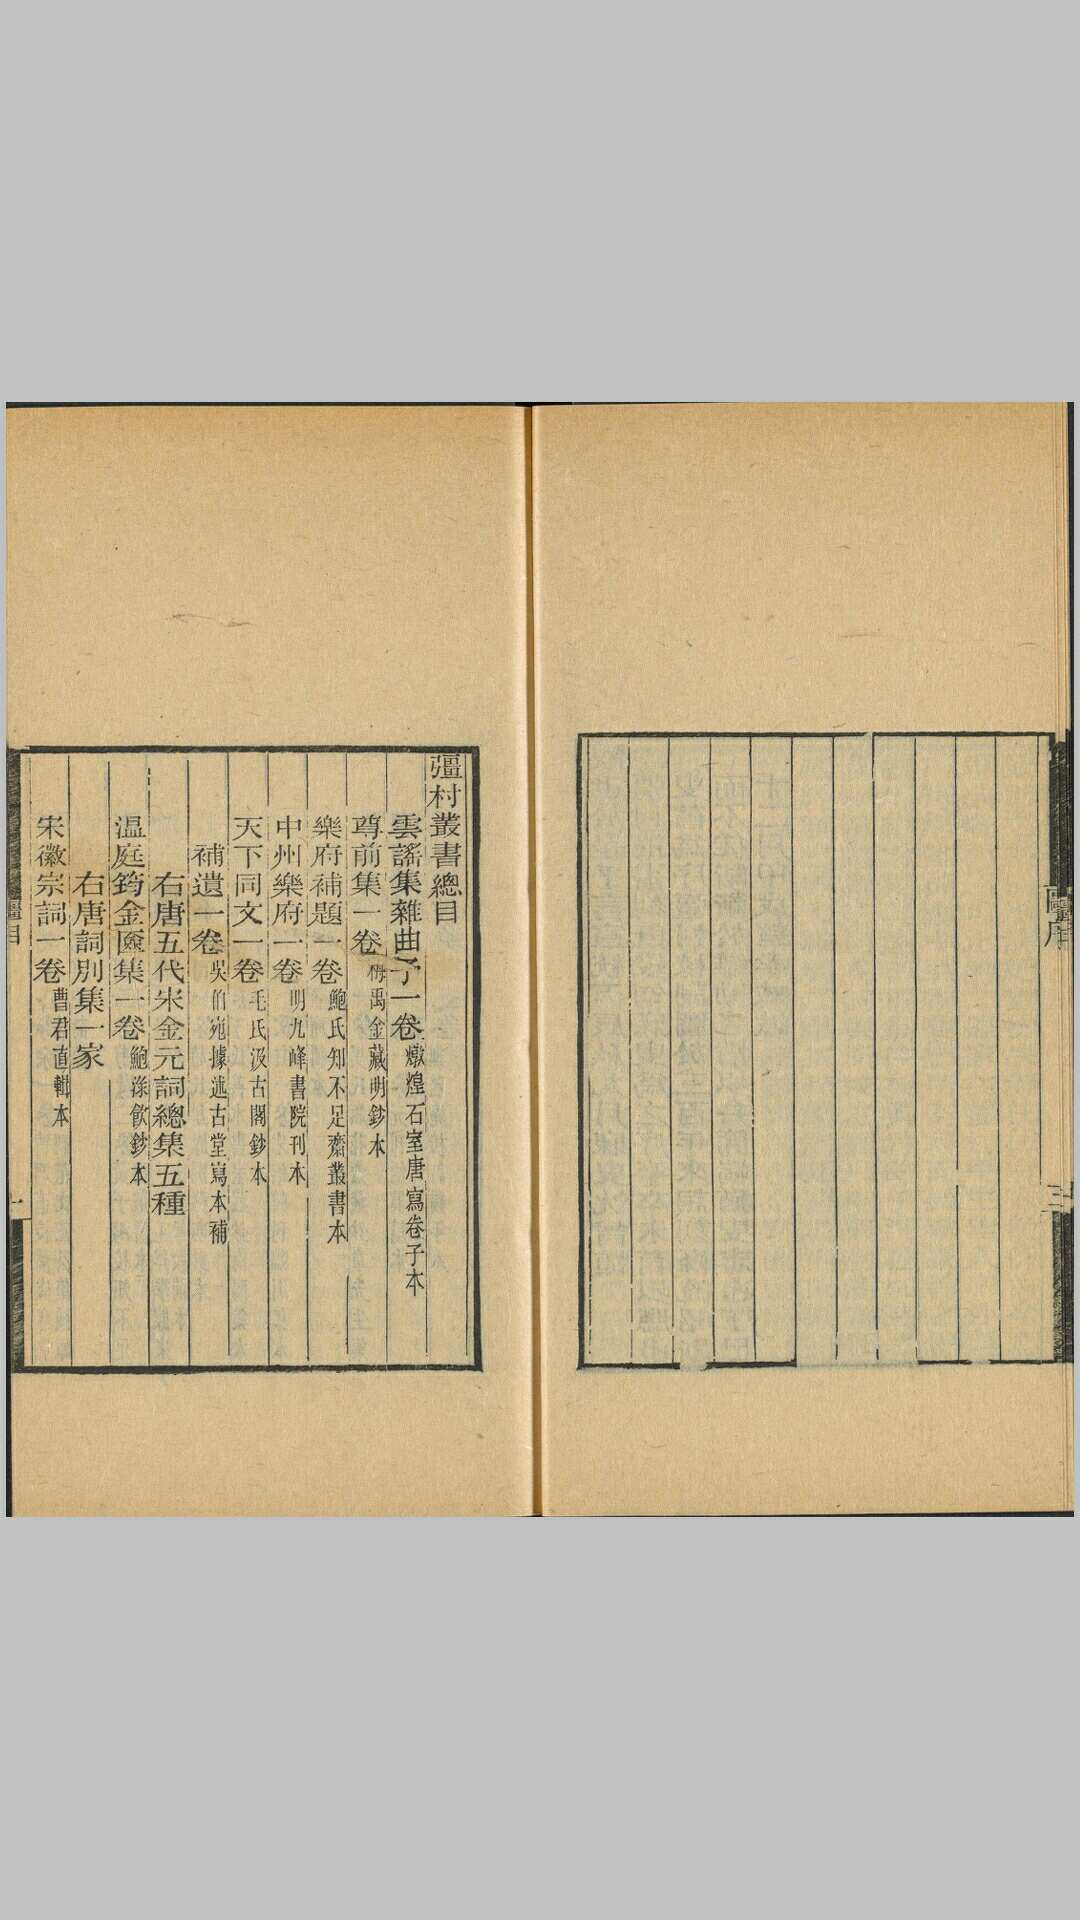 彊村叢書總目
雲謠集雜曲子一卷燉煌石室唐寫卷子本
尊前集一卷梅禹金藏明鈔本
樂府補題一卷鮑氏知不足齋叢書本
中州樂府一卷明九峰書院刊本
天下同文一卷毛氏汲古閣鈔本
補遺一卷吳伯宛據述古堂寫本補
右唐五代宋金元詞總集五種
温庭筠金匳集一卷鮑淥飲鈔本
右唐詞別集一家
宋徽宗詞一卷曹君直輯本